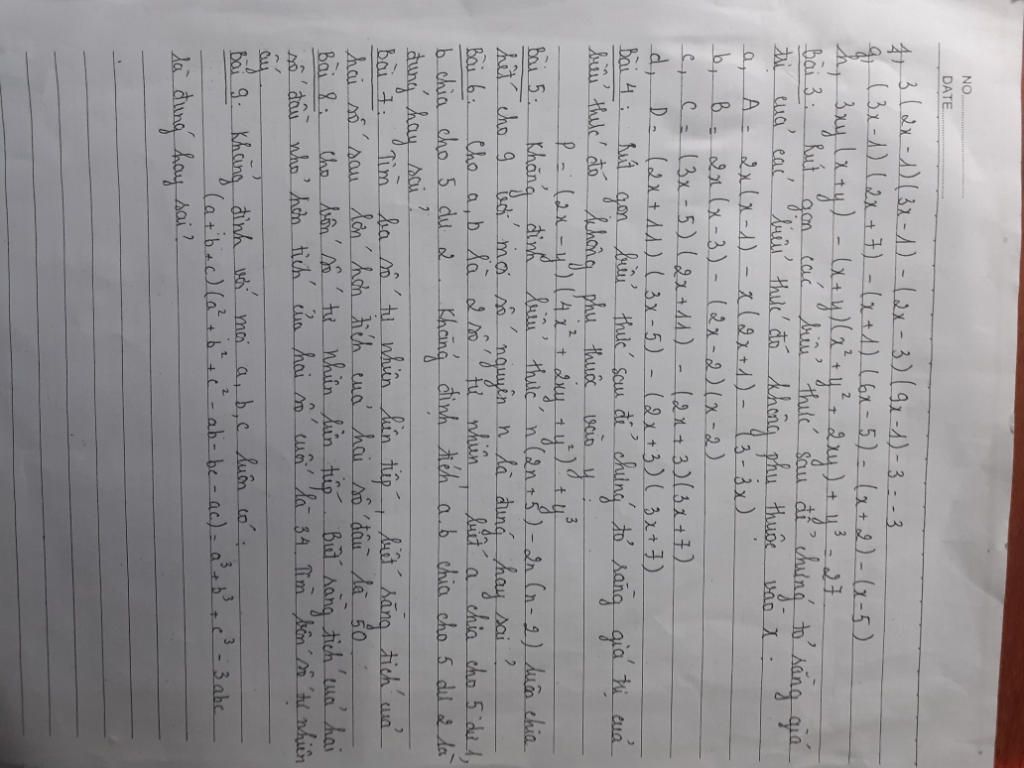 NO.
DATE
4, 3(2x-1)(3x-1) - (2x-3)(9x-1) - 3 = -3
g, (3x-1)(2x+7) - (x+1)(6x-5) = (x+2) - (x-5)
h, 3xy(x+y) - (x+y)(x² + y² + 2xy) + y³ = 27
Bài 3: Rút gọn các biểu thức sau để chứng tỏ rằng giá
trị của các biểu thức đó không phụ thuộc vào x.
a, A = 2x(x-1) - x(2x+1) - (3-3x)
b, B = 2x(x-3) - (2x-2)(x-2)
c, C = (3x-5)(2x+11) - (2x+3)(3x+7)
d, D = (2x+11)(3x-5) - (2x+3)(3x+7)
Bài 4: Rút gọn biểu thức sau để chứng tỏ rằng giá trị của
biểu thức đó không phụ thuộc vào y:
P = (2x-y)(4x² + 2xy + y²) + y³
Bài 5: Khẳng định biểu thức n(2n+5) - 2n(n-2) luôn chia
hết cho 9 với mọi số nguyên n là đúng hay sai?
Bài 6: Cho a, b là 2 số tự nhiên, biết a chia cho 5 dư 1,
b chia cho 5 dư 2. Khẳng định tích a.b chia cho 5 dư 2 là
đúng hay sai?
Bài 7: Tìm ba số tự nhiên liên tiếp, biết rằng tích của
hai số sau lớn hơn tích của hai số đầu là 50.
Bài 8: Cho bốn số tự nhiên liên tiếp. Biết rằng tích của hai
số đầu nhỏ hơn tích của hai số cuối là 34. Tìm bốn số tự nhiên
ấy.
Bài 9: Khẳng định với mọi a, b, c luôn có:
(a+b+c)(a² + b² + c² - ab - bc - ac) = a³ + b³ + c³ - 3abc
là đúng hay sai?